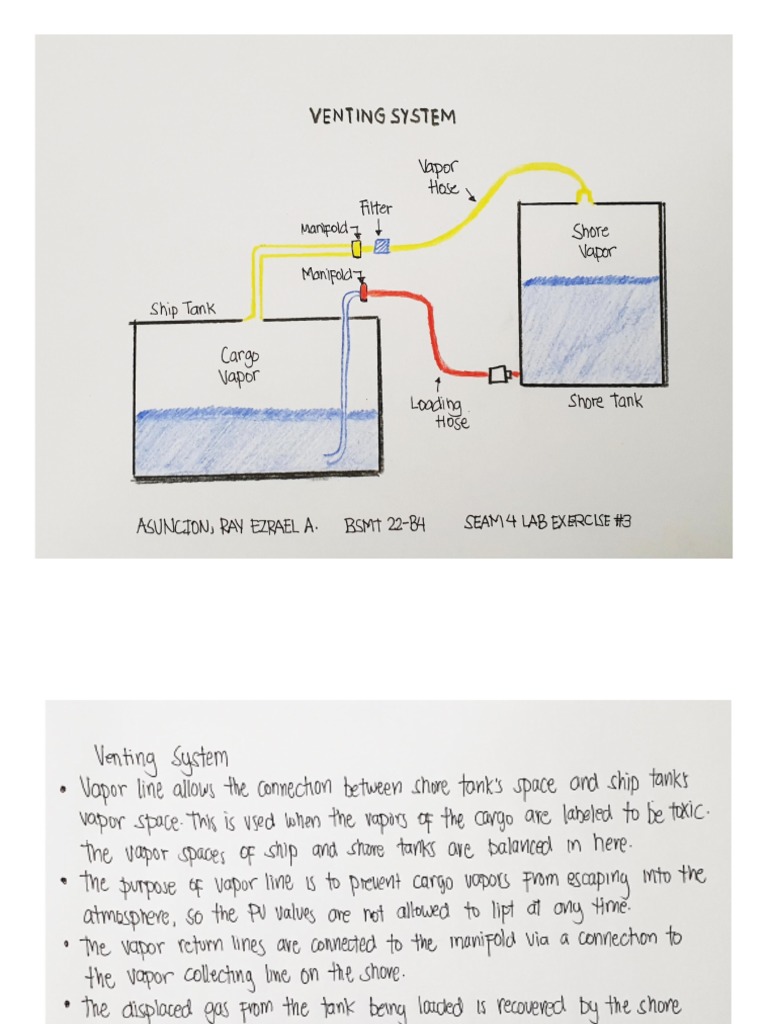 VENTING SYSTEM
Vapor
Hose
Filter
Manifold
Manifold
Shore
Vapor
Ship Tank
Cargo
Vapor
Loading
Hose
Shore Tank
ASUNCION, RAY EZRAEL A. BSMT 22-B4 SEAM 4 LAB EXERCISE #3
Venting System
• Vapor line allows the connection between shore tank's space and ship tank's
vapor space. This is used when the vapors of the cargo are labeled to be toxic.
The vapor spaces of ship and shore tanks are balanced in here.
• The purpose of vapor line is to prevent cargo vapors from escaping into the
atmosphere, so the PV values are not allowed to lipt at any time.
• The vapor return lines are connected to the manifold via a connection to
the vapor collecting line on the shore.
• The displaced gas from the tank being loaded is recovered by the shore